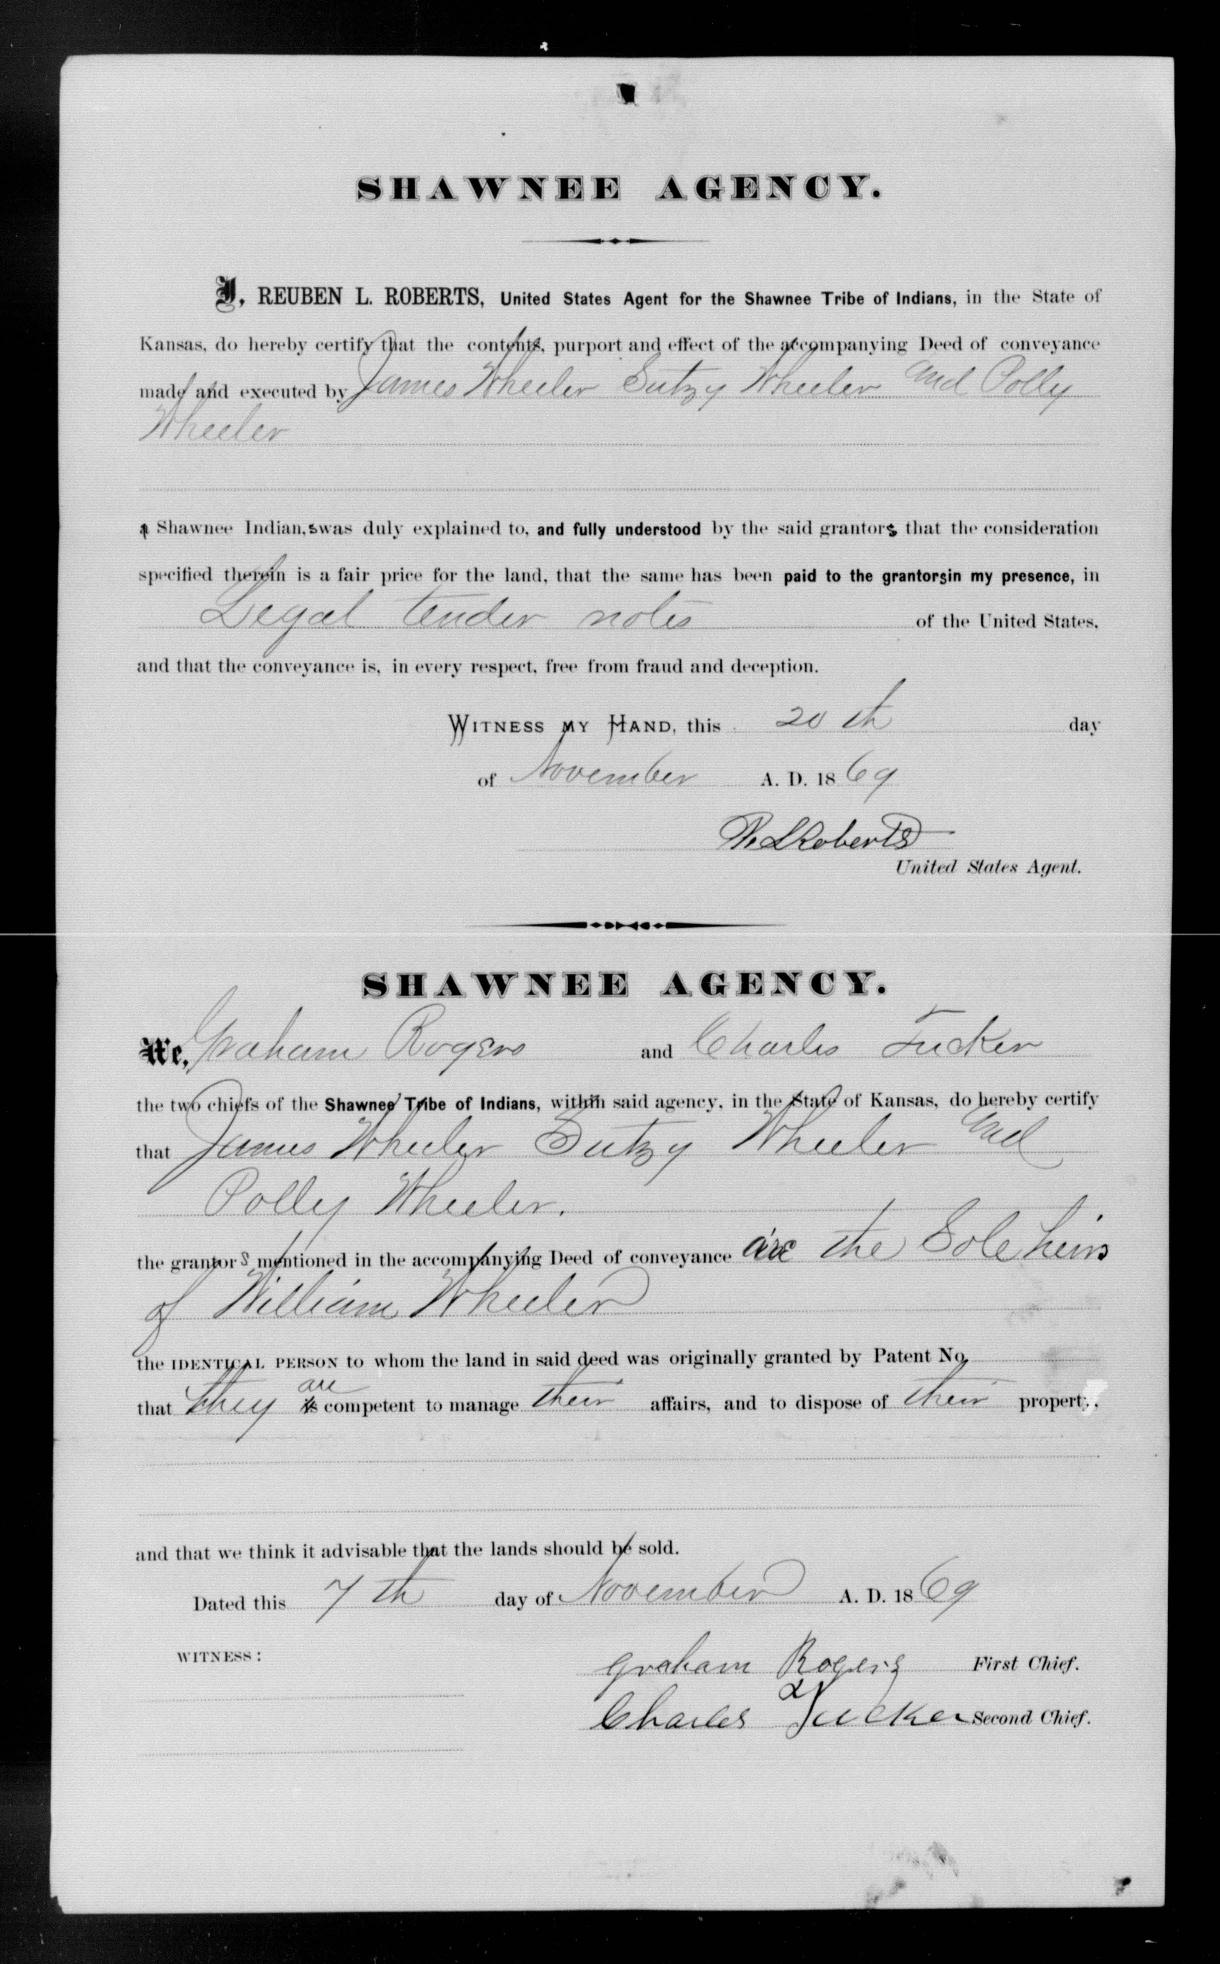 SHAWNEE AGENCY.
I, REUBEN L. ROBERTS, United States Agent for the Shawnee Tribe of Indians, in the State of
Kansas, do hereby certify that the contents, purport and effect of the accompanying Deed of conveyance
made and executed by James Wheeler Sutzy Wheeler and Polly
Wheeler
a Shawnee Indian,s was duly explained to, and fully understood by the said grantors that the consideration
specified therein is a fair price for the land, that the same has been paid to the grantors in my presence, in
Legal tender notes of the United States,
and that the conveyance is, in every respect, free from fraud and deception.
WITNESS MY HAND, this 20th day
of November A. D. 1869
R. L. Roberts
United States Agent.
SHAWNEE AGENCY.
We, Graham Rogers and Charles Tucker
the two chiefs of the Shawnee Tribe of Indians, within said agency, in the State of Kansas, do hereby certify
that James Wheeler Sutzy Wheeler and
Polly Wheeler.
the grantors mentioned in the accompanying Deed of conveyance are the Sole heirs
of William Wheeler
the IDENTICAL PERSON to whom the land in said deed was originally granted by Patent No.
are
that they is competent to manage their affairs, and to dispose of their property,
and that we think it advisable that the lands should be sold.
Dated this 7th day of November A. D. 1869
WITNESS:
Graham Rogers First Chief.
Charles Tucker Second Chief.